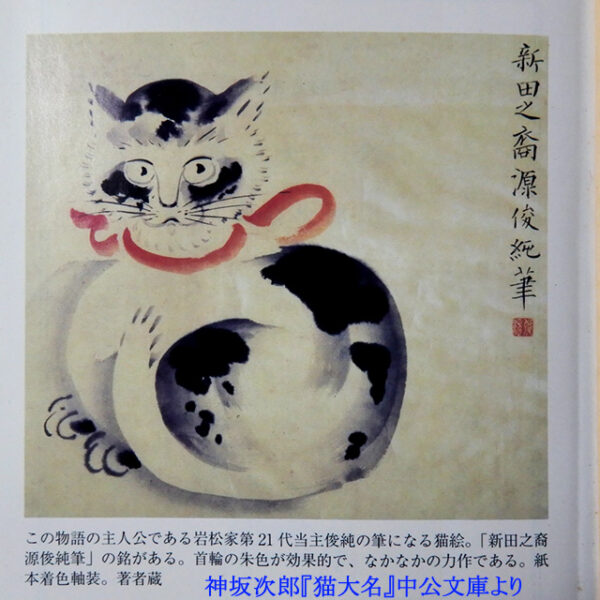 新田之裔源俊純筆
この物語の主人公である岩松家第21代当主俊純の筆になる猫絵。「新田之裔
源俊純筆」の銘がある。首輪の朱色が効果的で、なかなかの力作である。紙
本着色軸装。著者蔵
神坂次郎『猫大名』中公文庫より